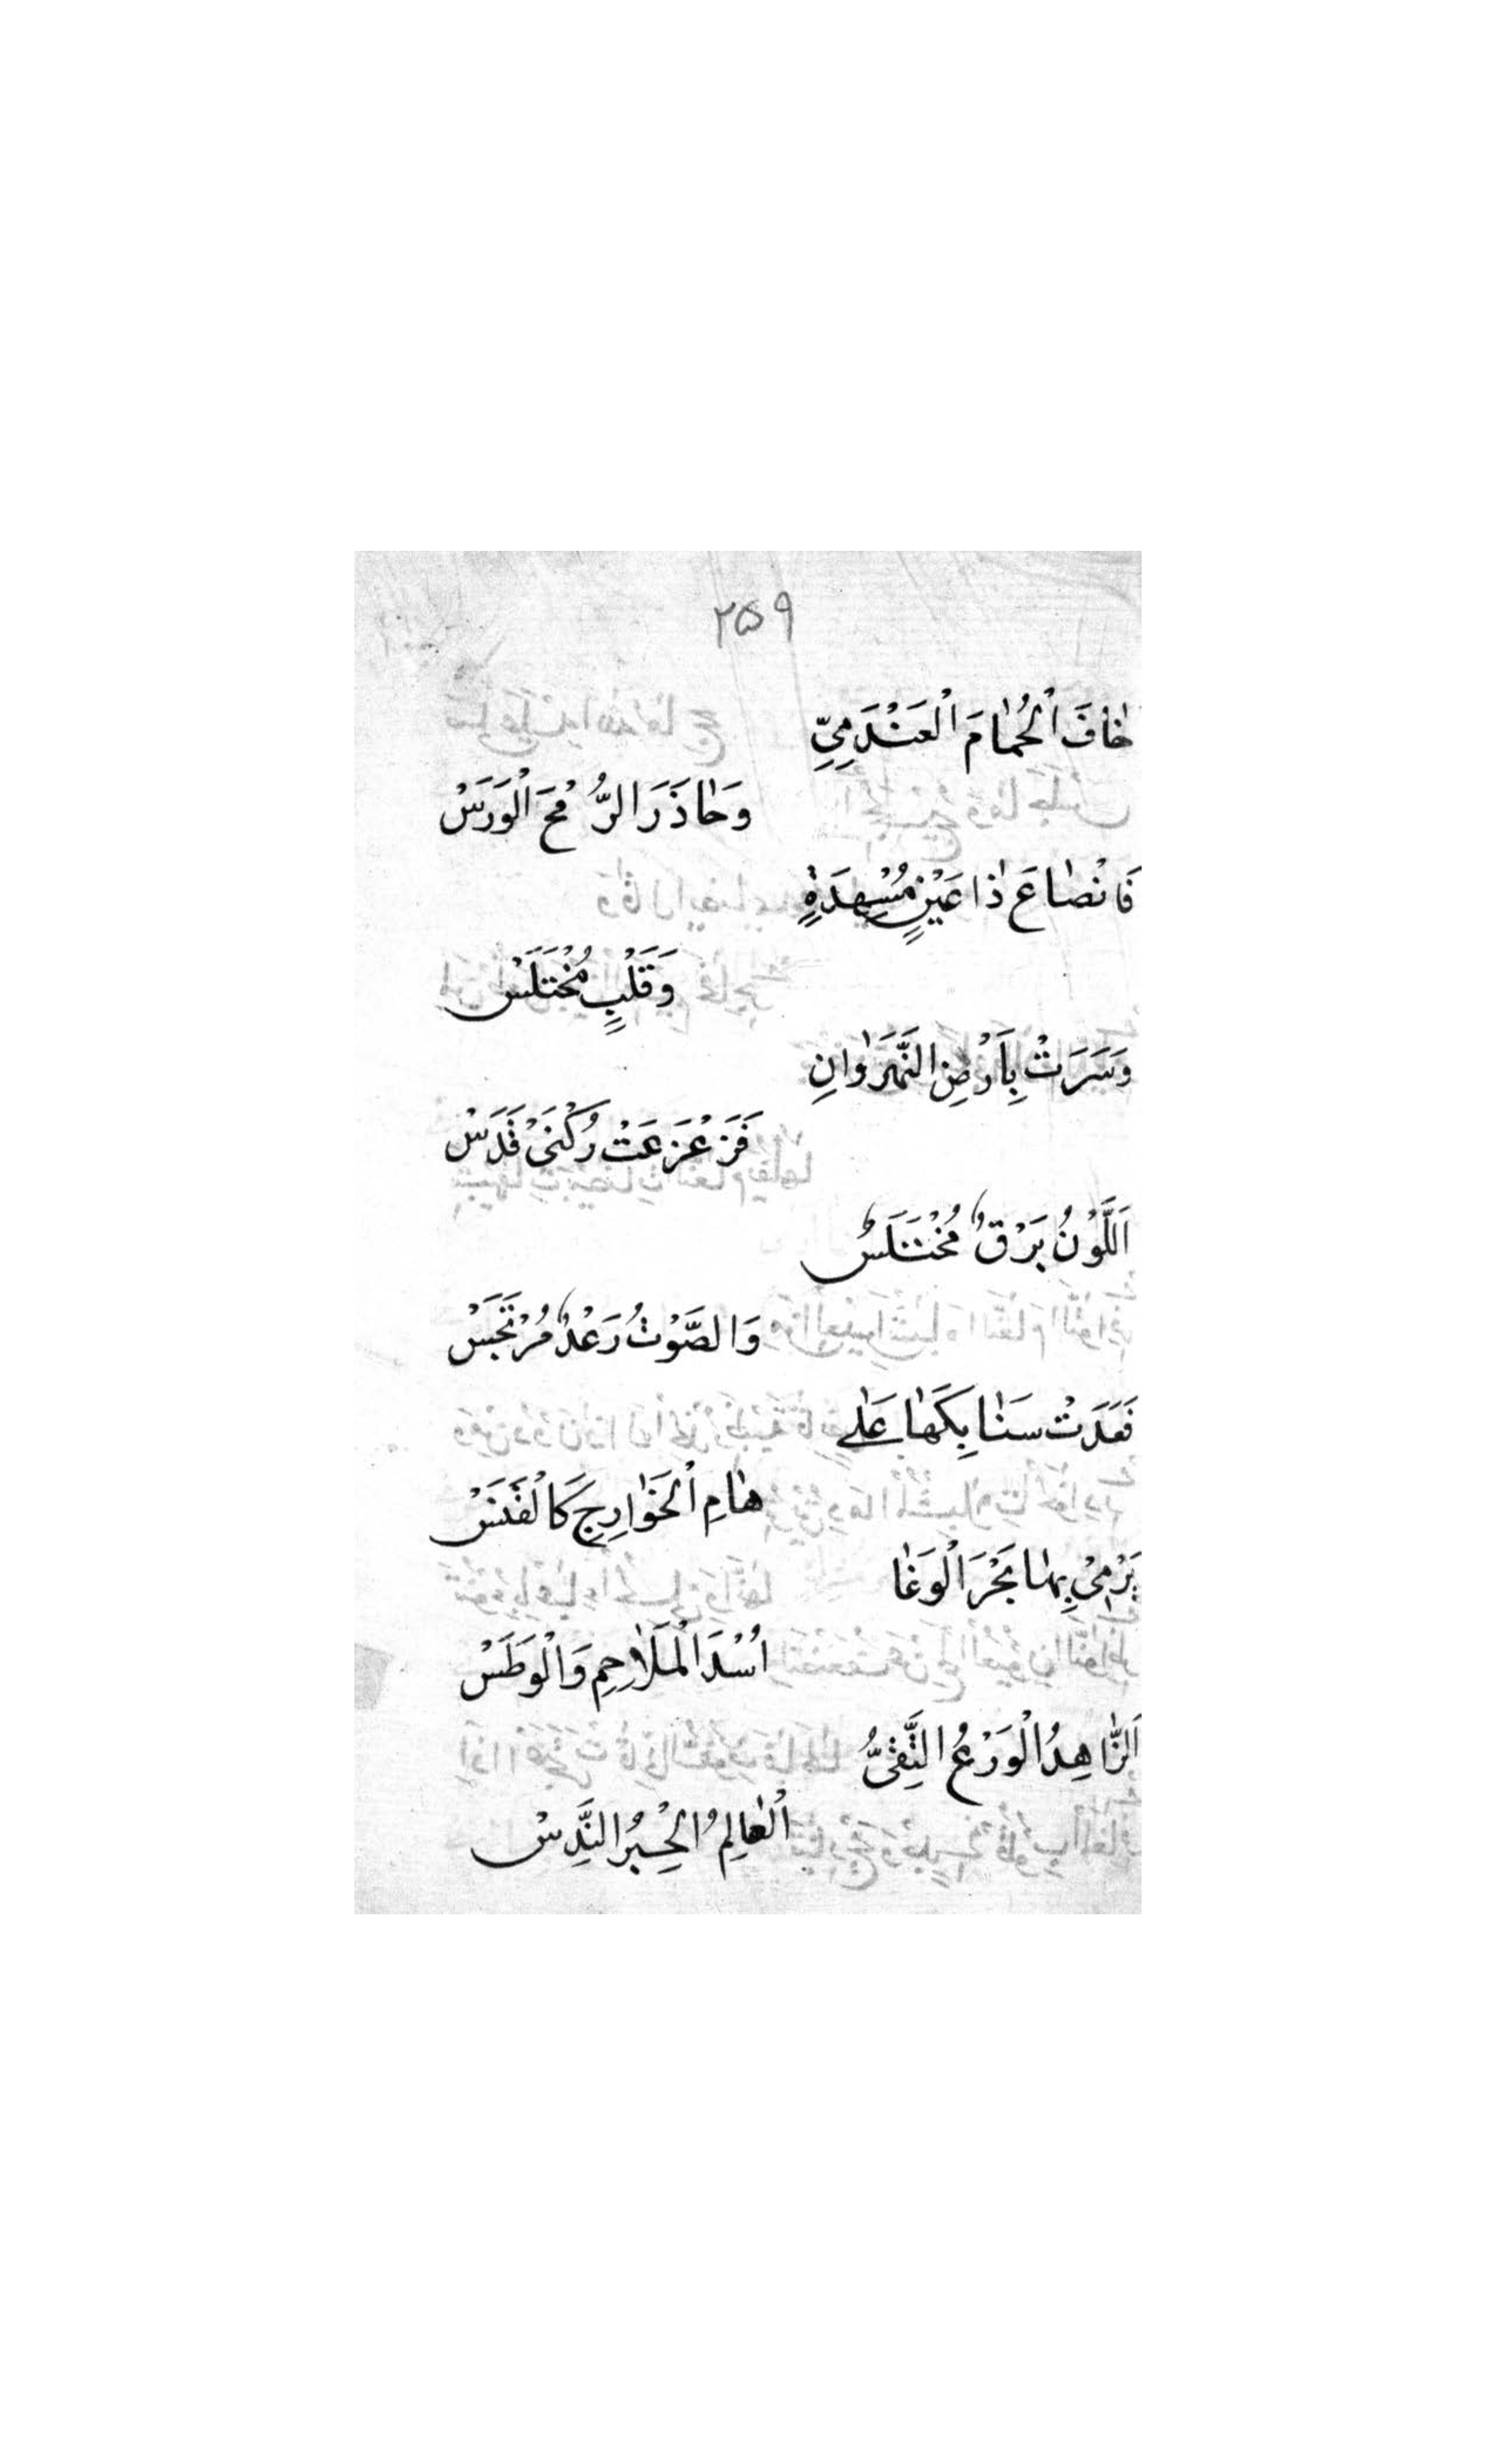 ۲۵۹
خَافَ الْحُمَامَ الْعَنْدَمِيِّ
وَحَاذَرَ الرُّمْحَ الْوَرَسْ
فَانْصَاعَ ذَا عَيْنٍ مُسْهِدَةٍ
وَقَلْبٍ مُخْتَلَسْ
وَسَرَتْ بِأَرْضِ النَّهْرَوَانِ
فَزَعْزَعَتْ رُكْنَيْ قَدَسْ
اَللَّوْنُ بَرْقٌ مُخْتَلَسٌ
وَالصَّوْتُ رَعْدٌ مُرْتَجَسْ
فَعَدَتْ سَنَابِكَهَا عَلٰے
هَامِ الْخَوَارِجِ كَالْقَنَسْ
يَرْمِيْ بِهَا بَحْرَ الْوَغَا
اُسْدَ الْمَلَاحِمِ وَالْوَطَسْ
اَلزَّاهِدُ الْوَرْعُ التَّقِيُّ
اَلْعَالِمُ الْحِبْرُ النَّدِسْ